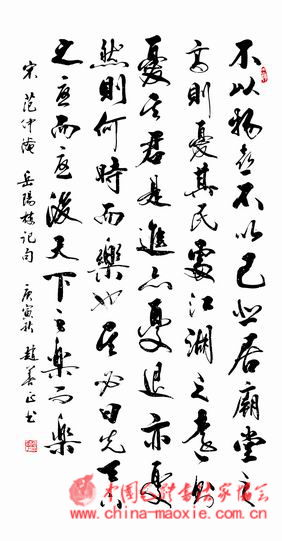 不以物喜不以己悲居廟堂之
高則憂其民處江湖之遠則
憂其君是進亦憂退亦憂
然則何時而樂也其必曰先天下
之憂而憂後天下之樂而樂
宋 范仲淹 岳陽樓記句 庚寅秋 趙善正书
中国毛体书法家协会
www.china-maoxie.com